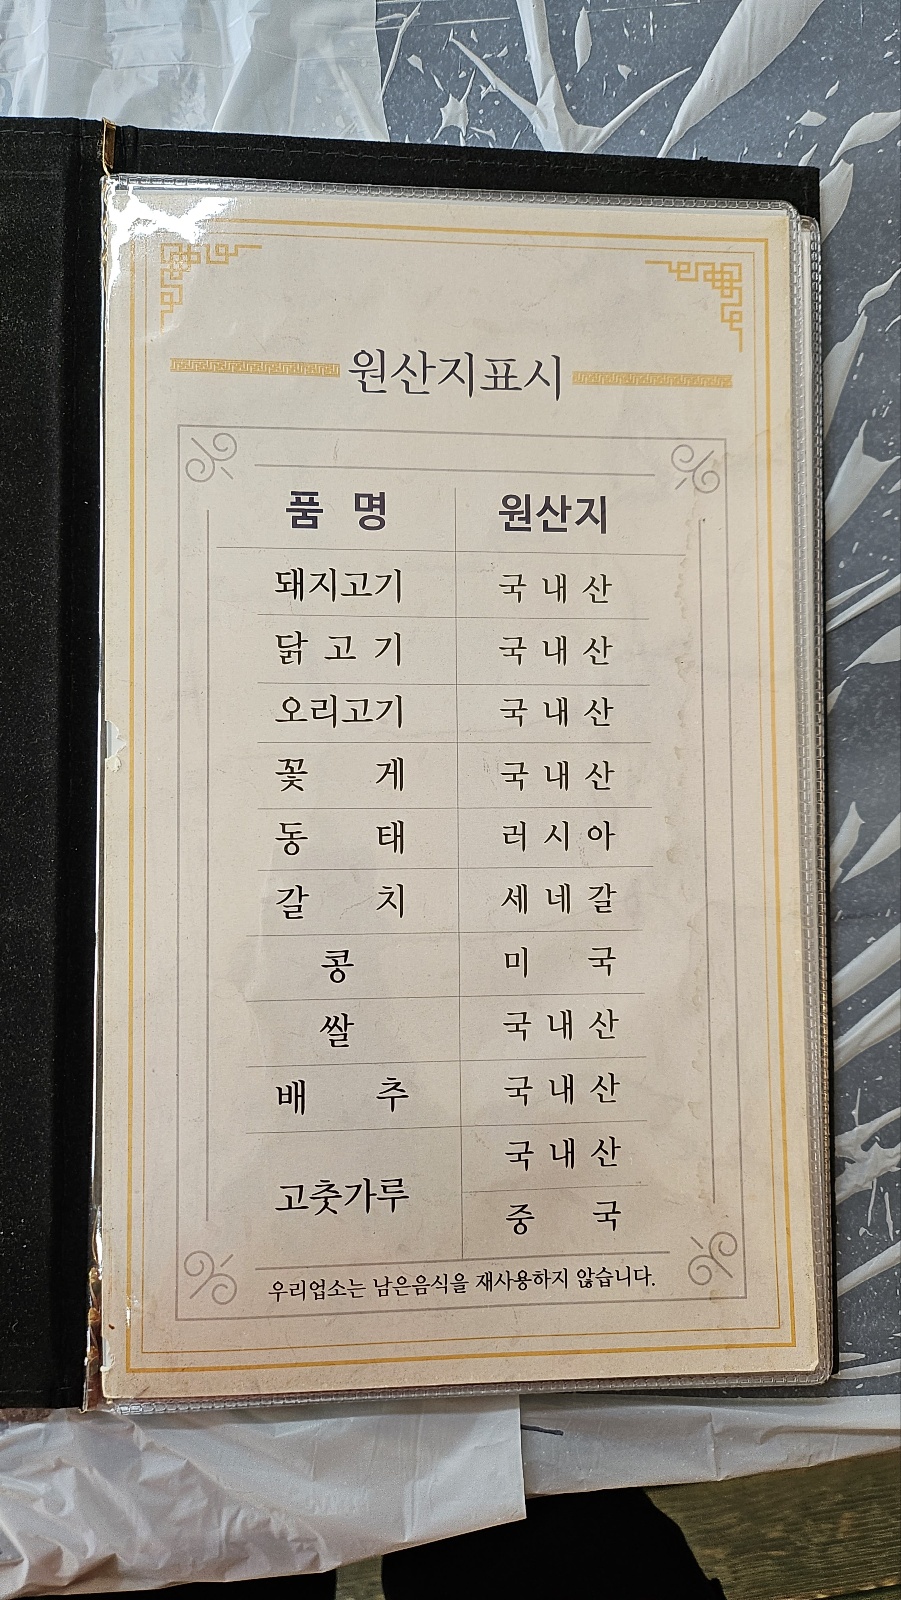 원산지표시
품 명 원산지
돼지고기 국내산
닭고기 국내산
오리고기 국내산
꽃 게 국내산
동 태 러시아
갈 치 세네갈
콩 미 국
쌀 국내산
배 추 국내산
고춧가루 국내산
중 국
우리업소는 남은음식을 재사용하지 않습니다.